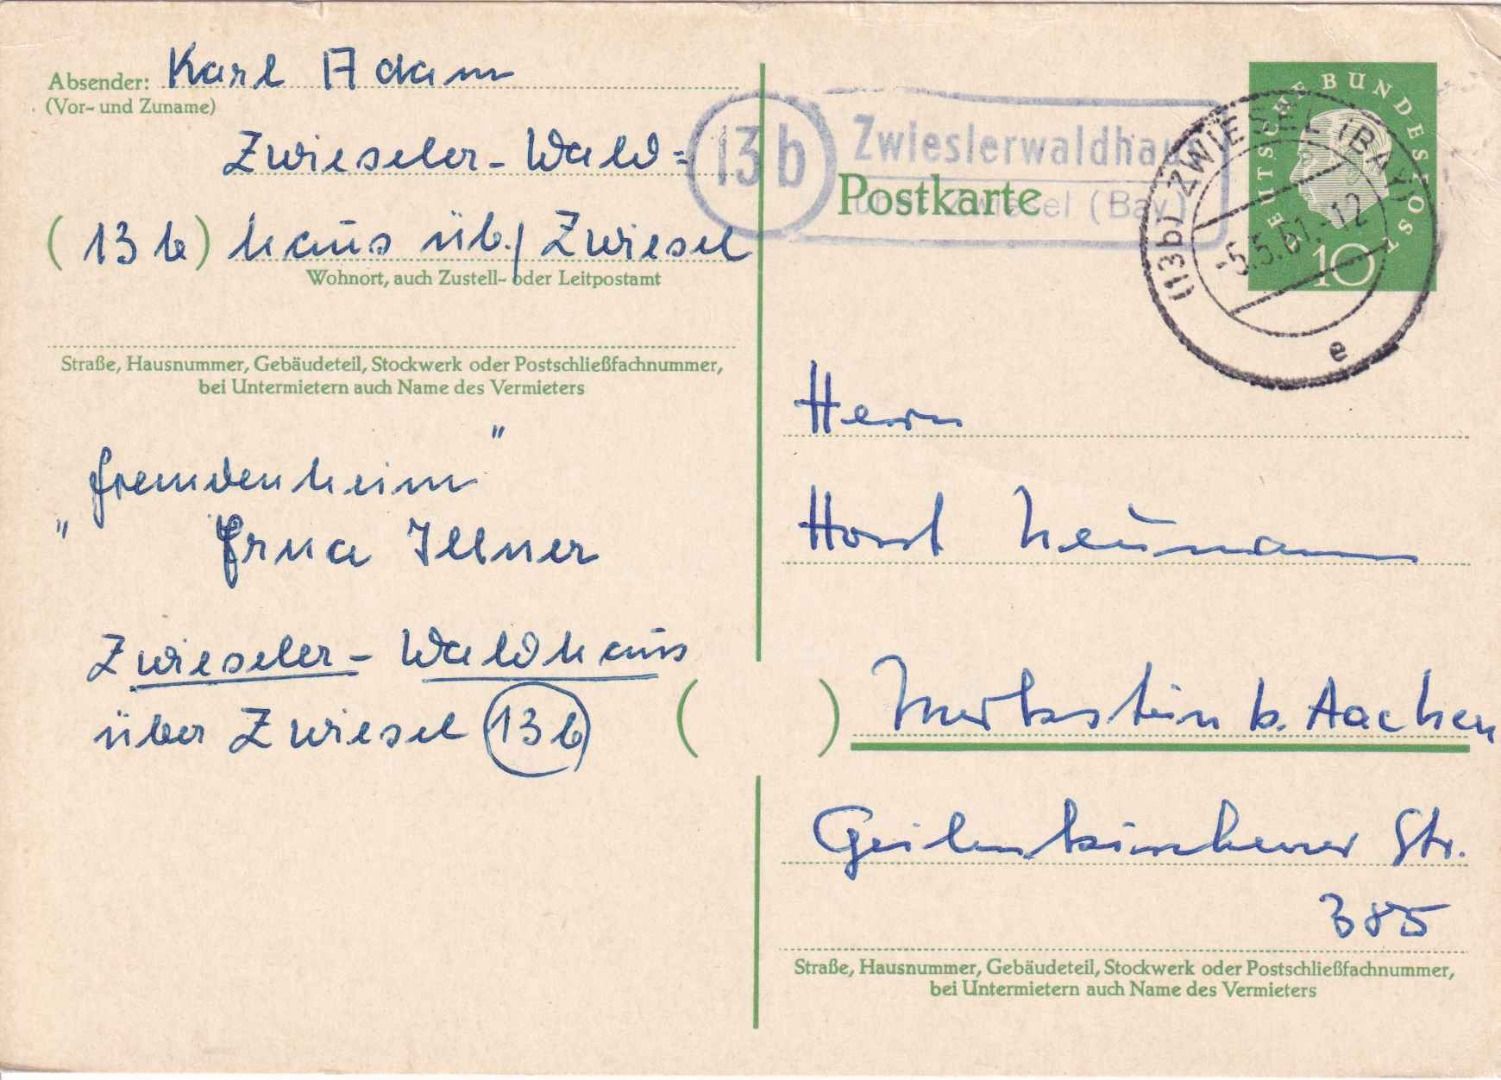 Absender: Karl Adam
(Vor- und Zuname)
Zwieseler-Wald=
(13b) haus üb./Zwiesel
Wohnort, auch Zustell- oder Leitpostamt
Straße, Hausnummer, Gebäudeteil, Stockwerk oder Postschließfachnummer,
bei Untermietern auch Name des Vermieters
"Fremdenheim"
"Erna Illner
Zwieseler-Waldhaus
über Zwiesel (13b)
13b Zwieslerwaldhaus
über Zwiesel (Bay)
Postkarte
DEUTSCHE BUNDESPOST
10
(13b) ZWIESEL (BAY)
-5.5.61.-12
e
Herrn
Horst Neumann
( ) Merkstein b. Aachen
Geilenkirchener Str.
385
Straße, Hausnummer, Gebäudeteil, Stockwerk oder Postschließfachnummer,
bei Untermietern auch Name des Vermieters